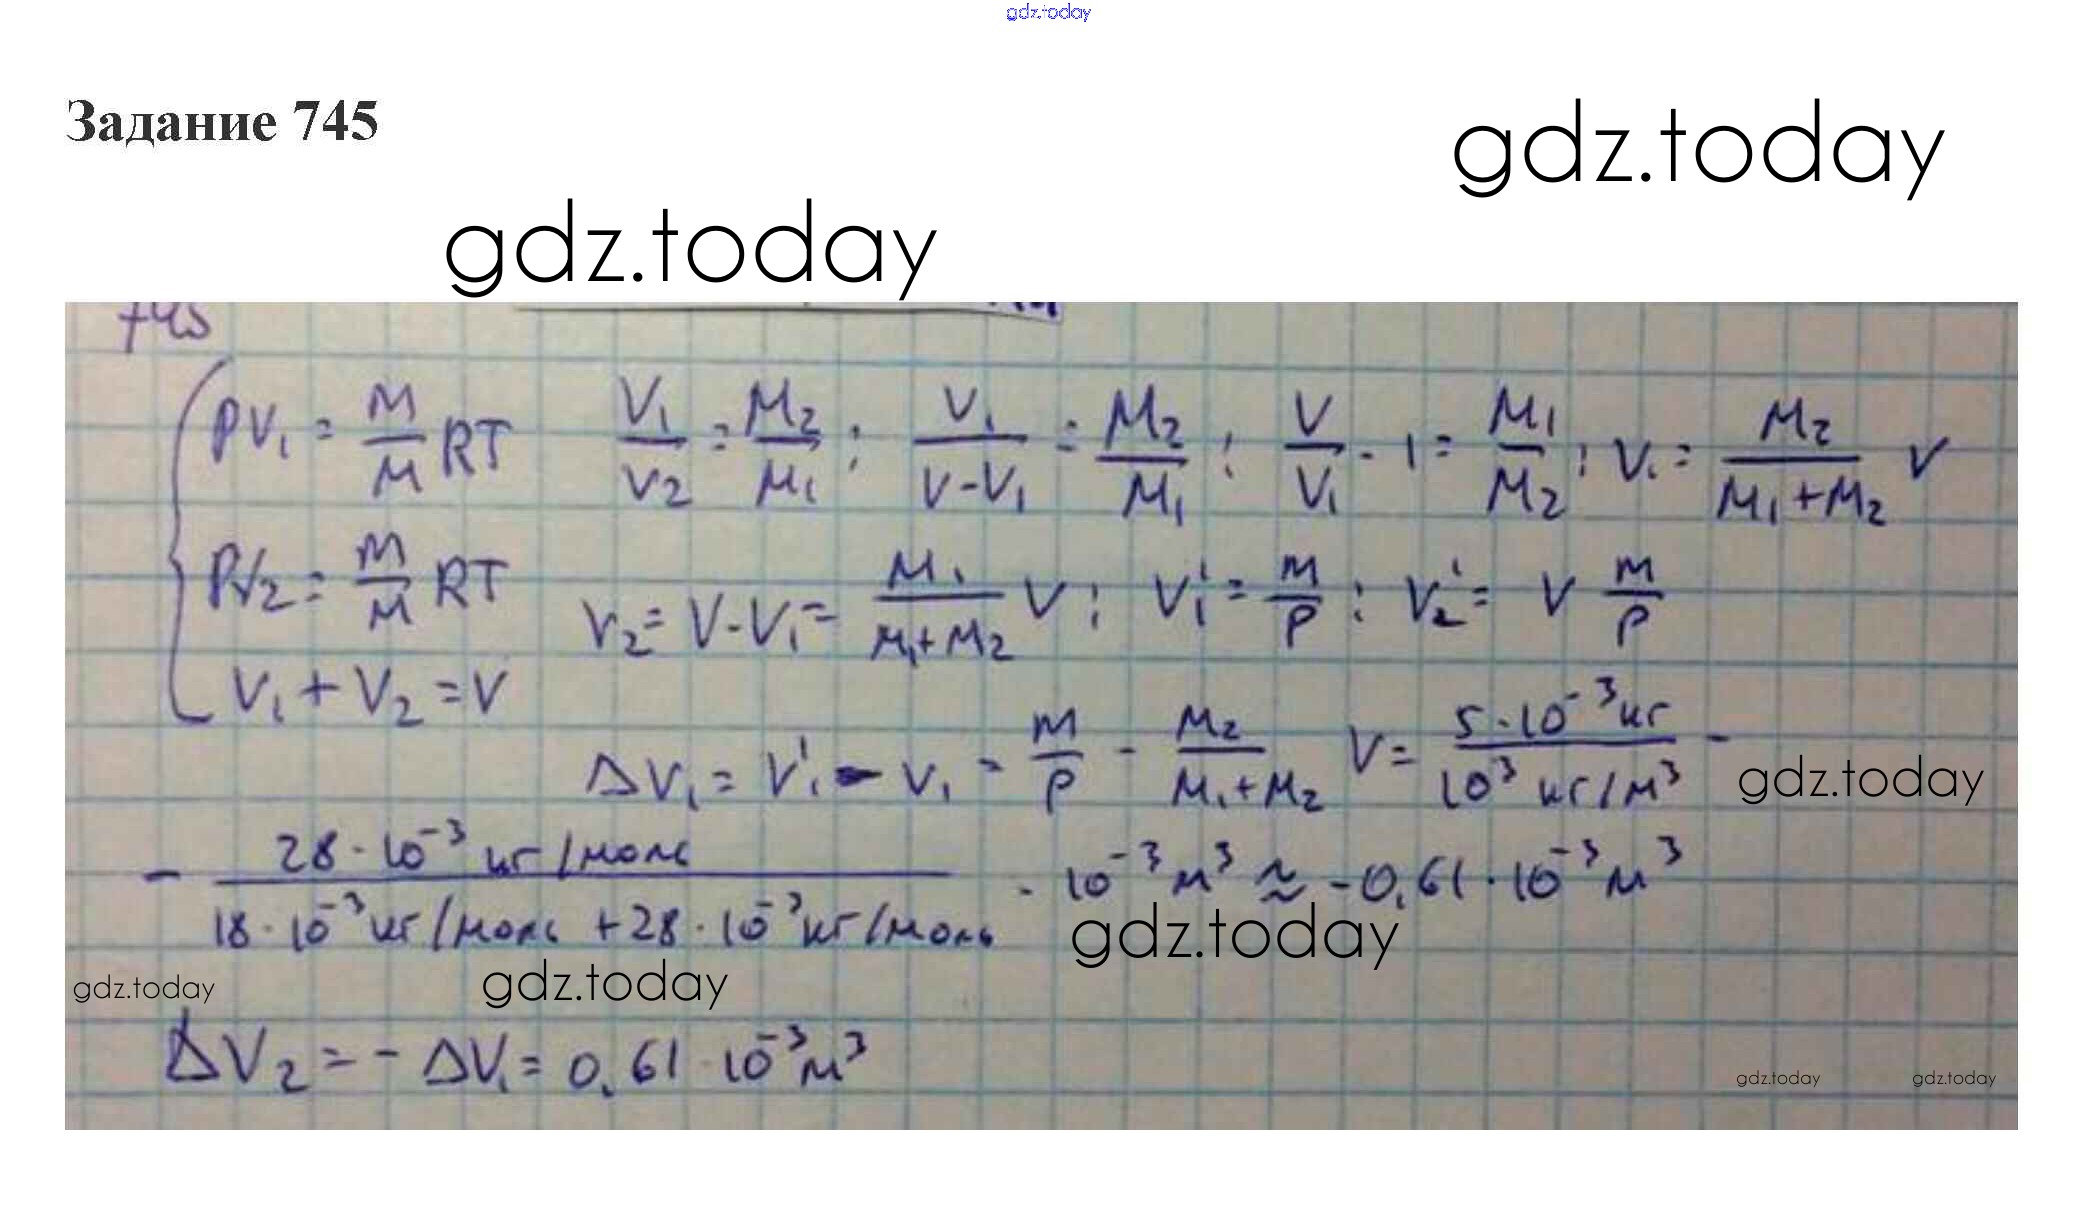 gdz.today
Задание 745
gdz.today
gdz.today
745
PV₁ = m/M RT V₁/V₂ = M₂/M₁ ; V₁/(V-V₁) = M₂/M₁ ; V/V₁ - 1 = M₁/M₂ ; V₁ = M₂/(M₁+M₂) V
PV₂ = m/M RT V₂ = V-V₁ = M₁/(M₁+M₂) V ; V₁' = m/P ; V₂' = V m/P
V₁ + V₂ = V
ΔV₁ = V₁' - V₁ = m/P - M₂/(M₁+M₂) V = 5·10⁻³ кг/10³ кг/м³ -
gdz.today
- 28·10⁻³ кг/моль / 18·10⁻³ кг/моль + 28·10⁻³ кг/моль · 10⁻³ м³ ≈ -0,61·10⁻³ м³
gdz.today
gdz.today gdz.today
ΔV₂ = - ΔV₁ = 0,61·10⁻³ м³
gdz.today gdz.today